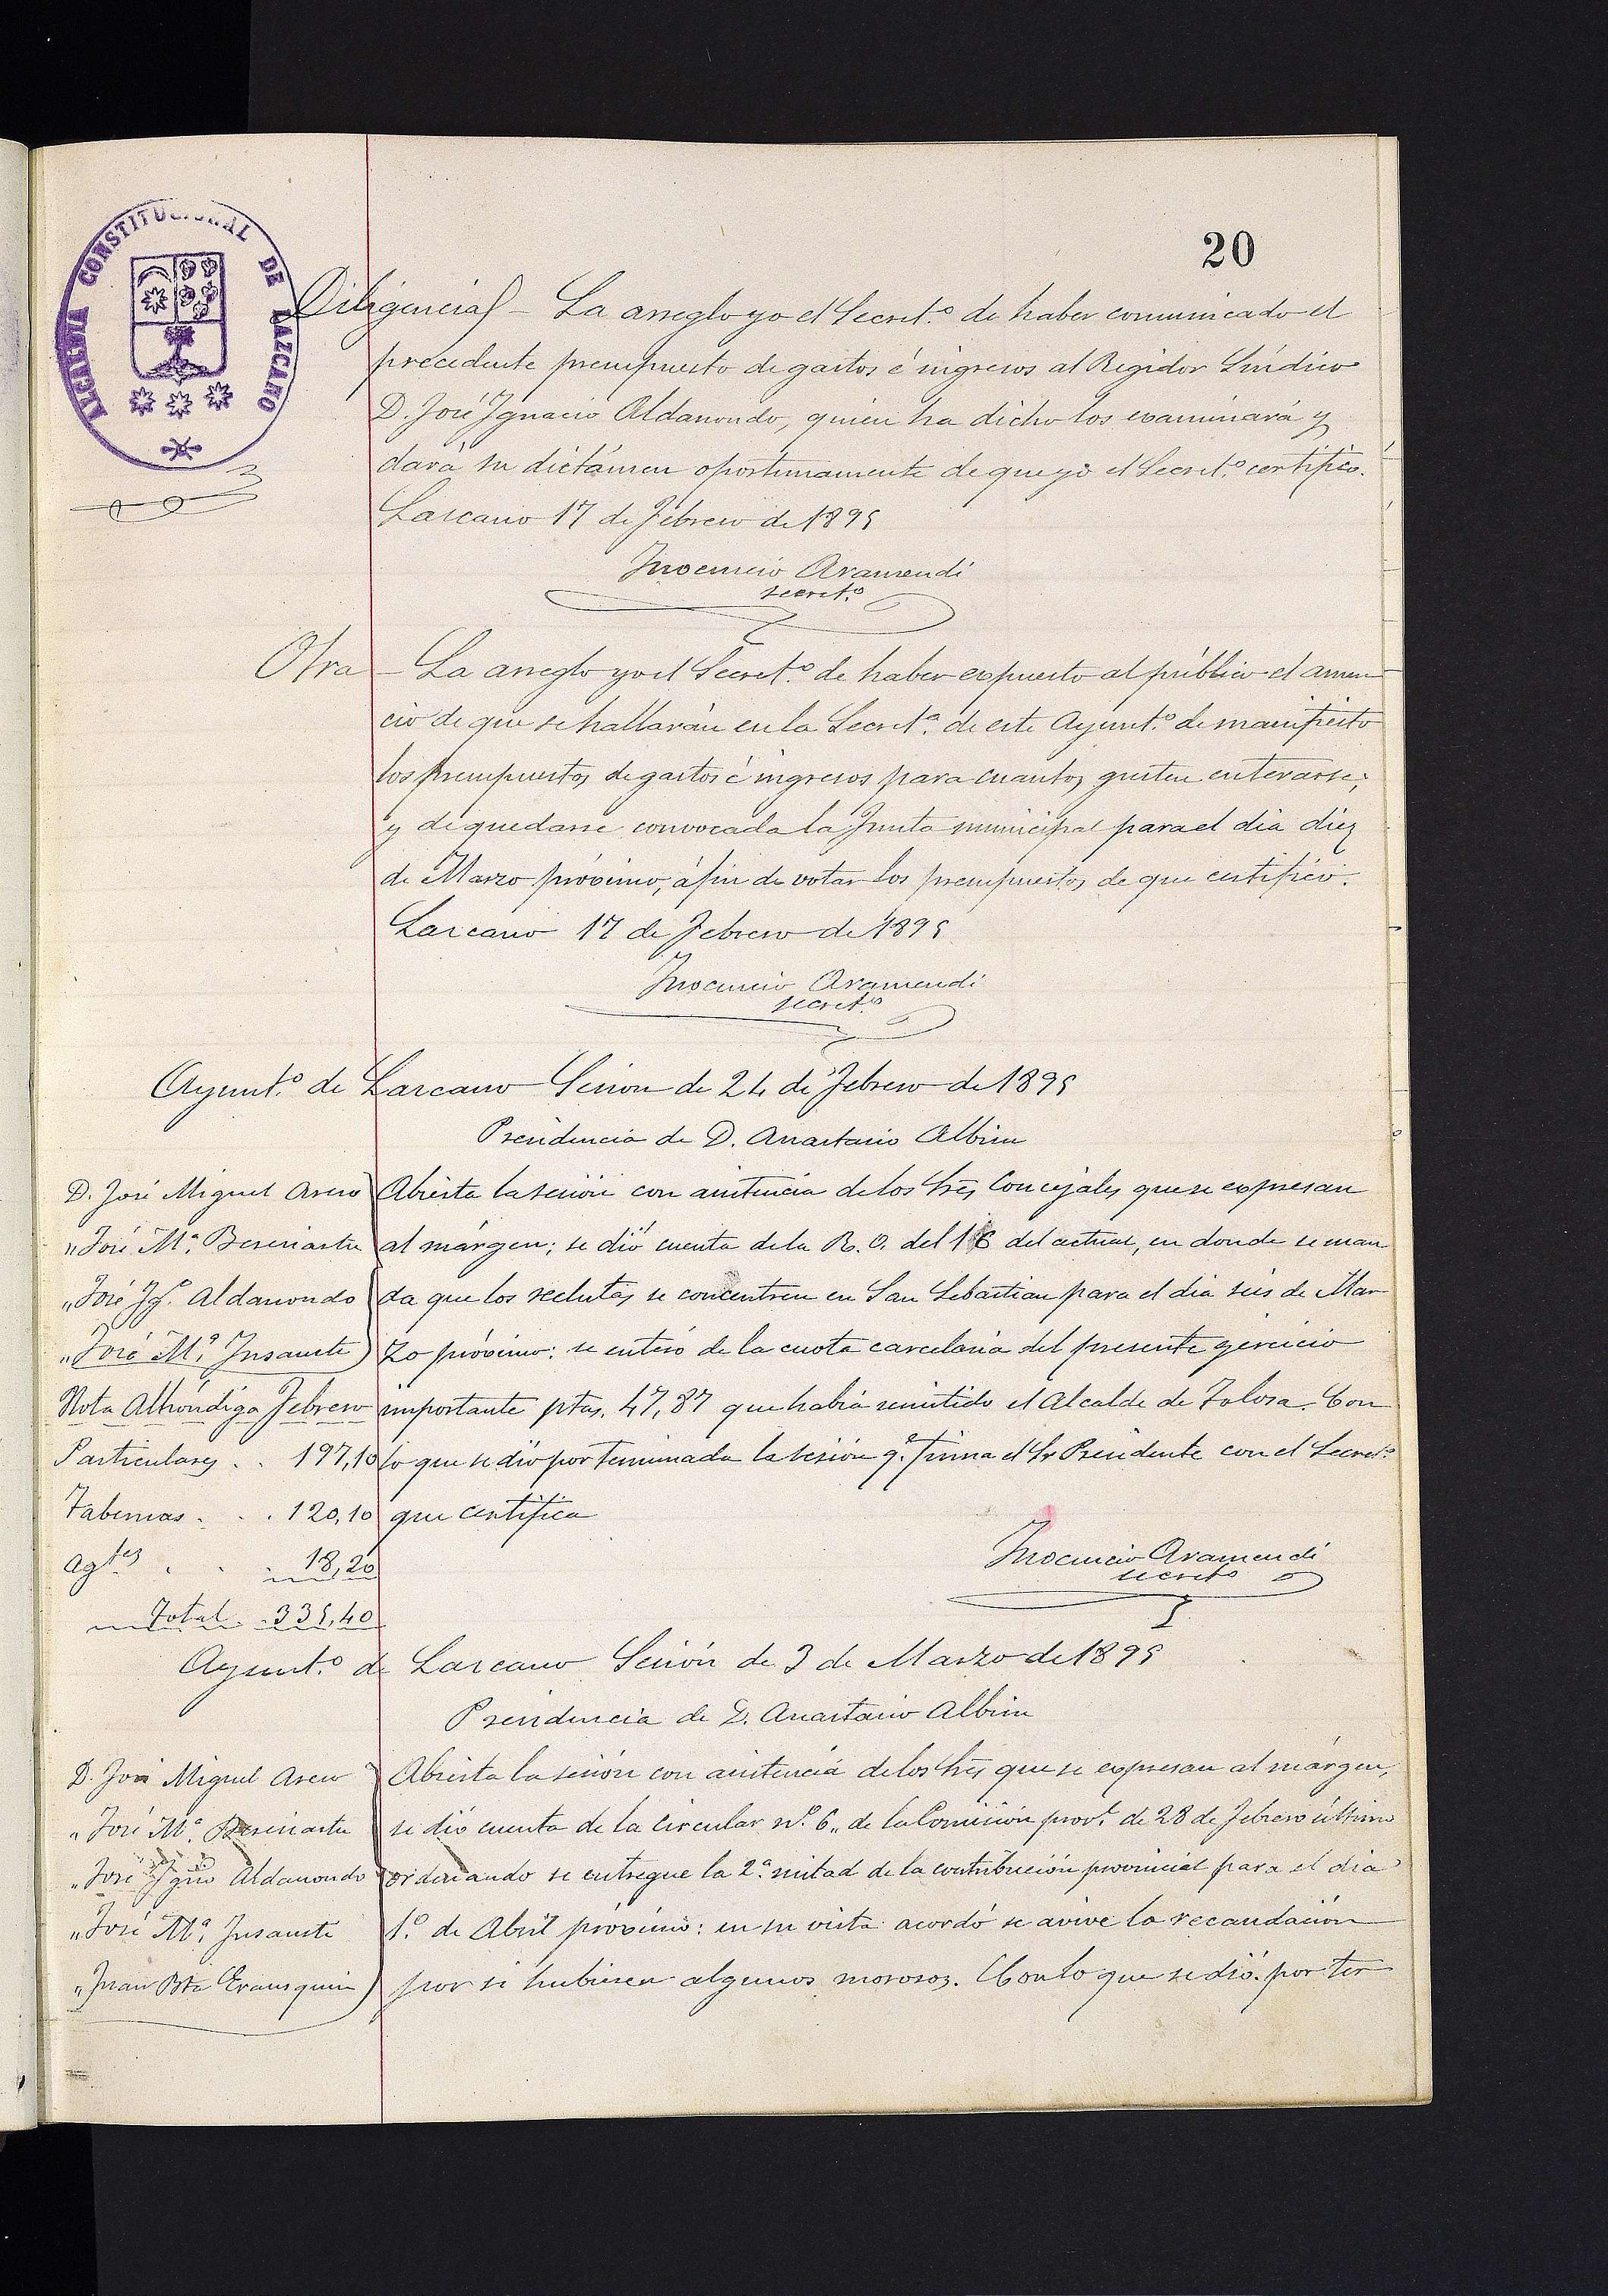 20
ALCALDIA CONSTITUCIONAL DE LAZCANO
Diligencia) - La arreglo yo el Secret.º de haber comunicado el
precedente presupuesto de gastos é ingresos al Regidor Síndico
D. José Ignacio Aldanondo, quien ha dicho los examinará y
dará su dictámen oportunamente de que yo el Secret.º certifico.
Lazcano 17 de Febrero de 1895
Inocencio Aramendi
secret.º
Otra - La arreglo yo el Secret.º de haber expuesto al público el anun
cio de que se hallarán en la Secret.ª de este Ayunt.º de manifiesto
los presupuestos de gastos é ingresos para cuantos gusten enterarse;
y de quedarse convocada la Junta municipal para el dia diez
de Marzo próximo, áfin de votar los presupuestos de que certifico.
Lazcano 17 de Febrero de 1895
Inocencio Aramendi
secret.º
Ayunt.º de Lazcano Sesion de 24 de Febrero de 1895
Presidencia de D. Anastasio Albisu
D. José Miguel Aseso
" José M.ª Beresiartu
" José Ig.º Aldanondo
" José M.ª Insausti
Abierta la sesión con asistencia de los Sres Concejales que se expresan
al márgen; se dió cuenta de la R. O. del 16 del actual, en donde se man
da que los reclutas se concentren en San Sebastian para el dia seis de Mar
zo próximo: se enteró de la cuota carcelaria del presente ejercicio
importante ptas. 47,87 que habia remitido el Alcalde de Tolosa. Con
lo que se dió por terminada la sesión q.e firma el Sr Presidente con el Secret.º
que certifica
Nota Alhóndiga Febrero
Particulares . . 197,10
Tabernas . . . 120,10
Agtes . . . 18,20
Total . . 335,40
Inocencio Aramendi
secretº
Ayunt.º de Lazcano Sesión de 3 de Marzo de 1895
Presidencia de D. Anastasio Albisu
D. José Miguel Aseso
" José M.ª Beresiartu
" José Igno Aldanondo
" José M.ª Insausti
" Juan Bta Erausquin
Abierta la sesión con asistencia de los Sres que se expresan al márgen,
se dió cuenta de la circular n.º 6,, de la Comisión prov.l de 28 de Febrero último
ordenando se entregue la 2.ª mitad de la contribución provincial para el dia
1.º de Abril próximo: en su vista acordó se avive la recaudación
por si hubiesen algunos morosos. Con lo que se dió por ter